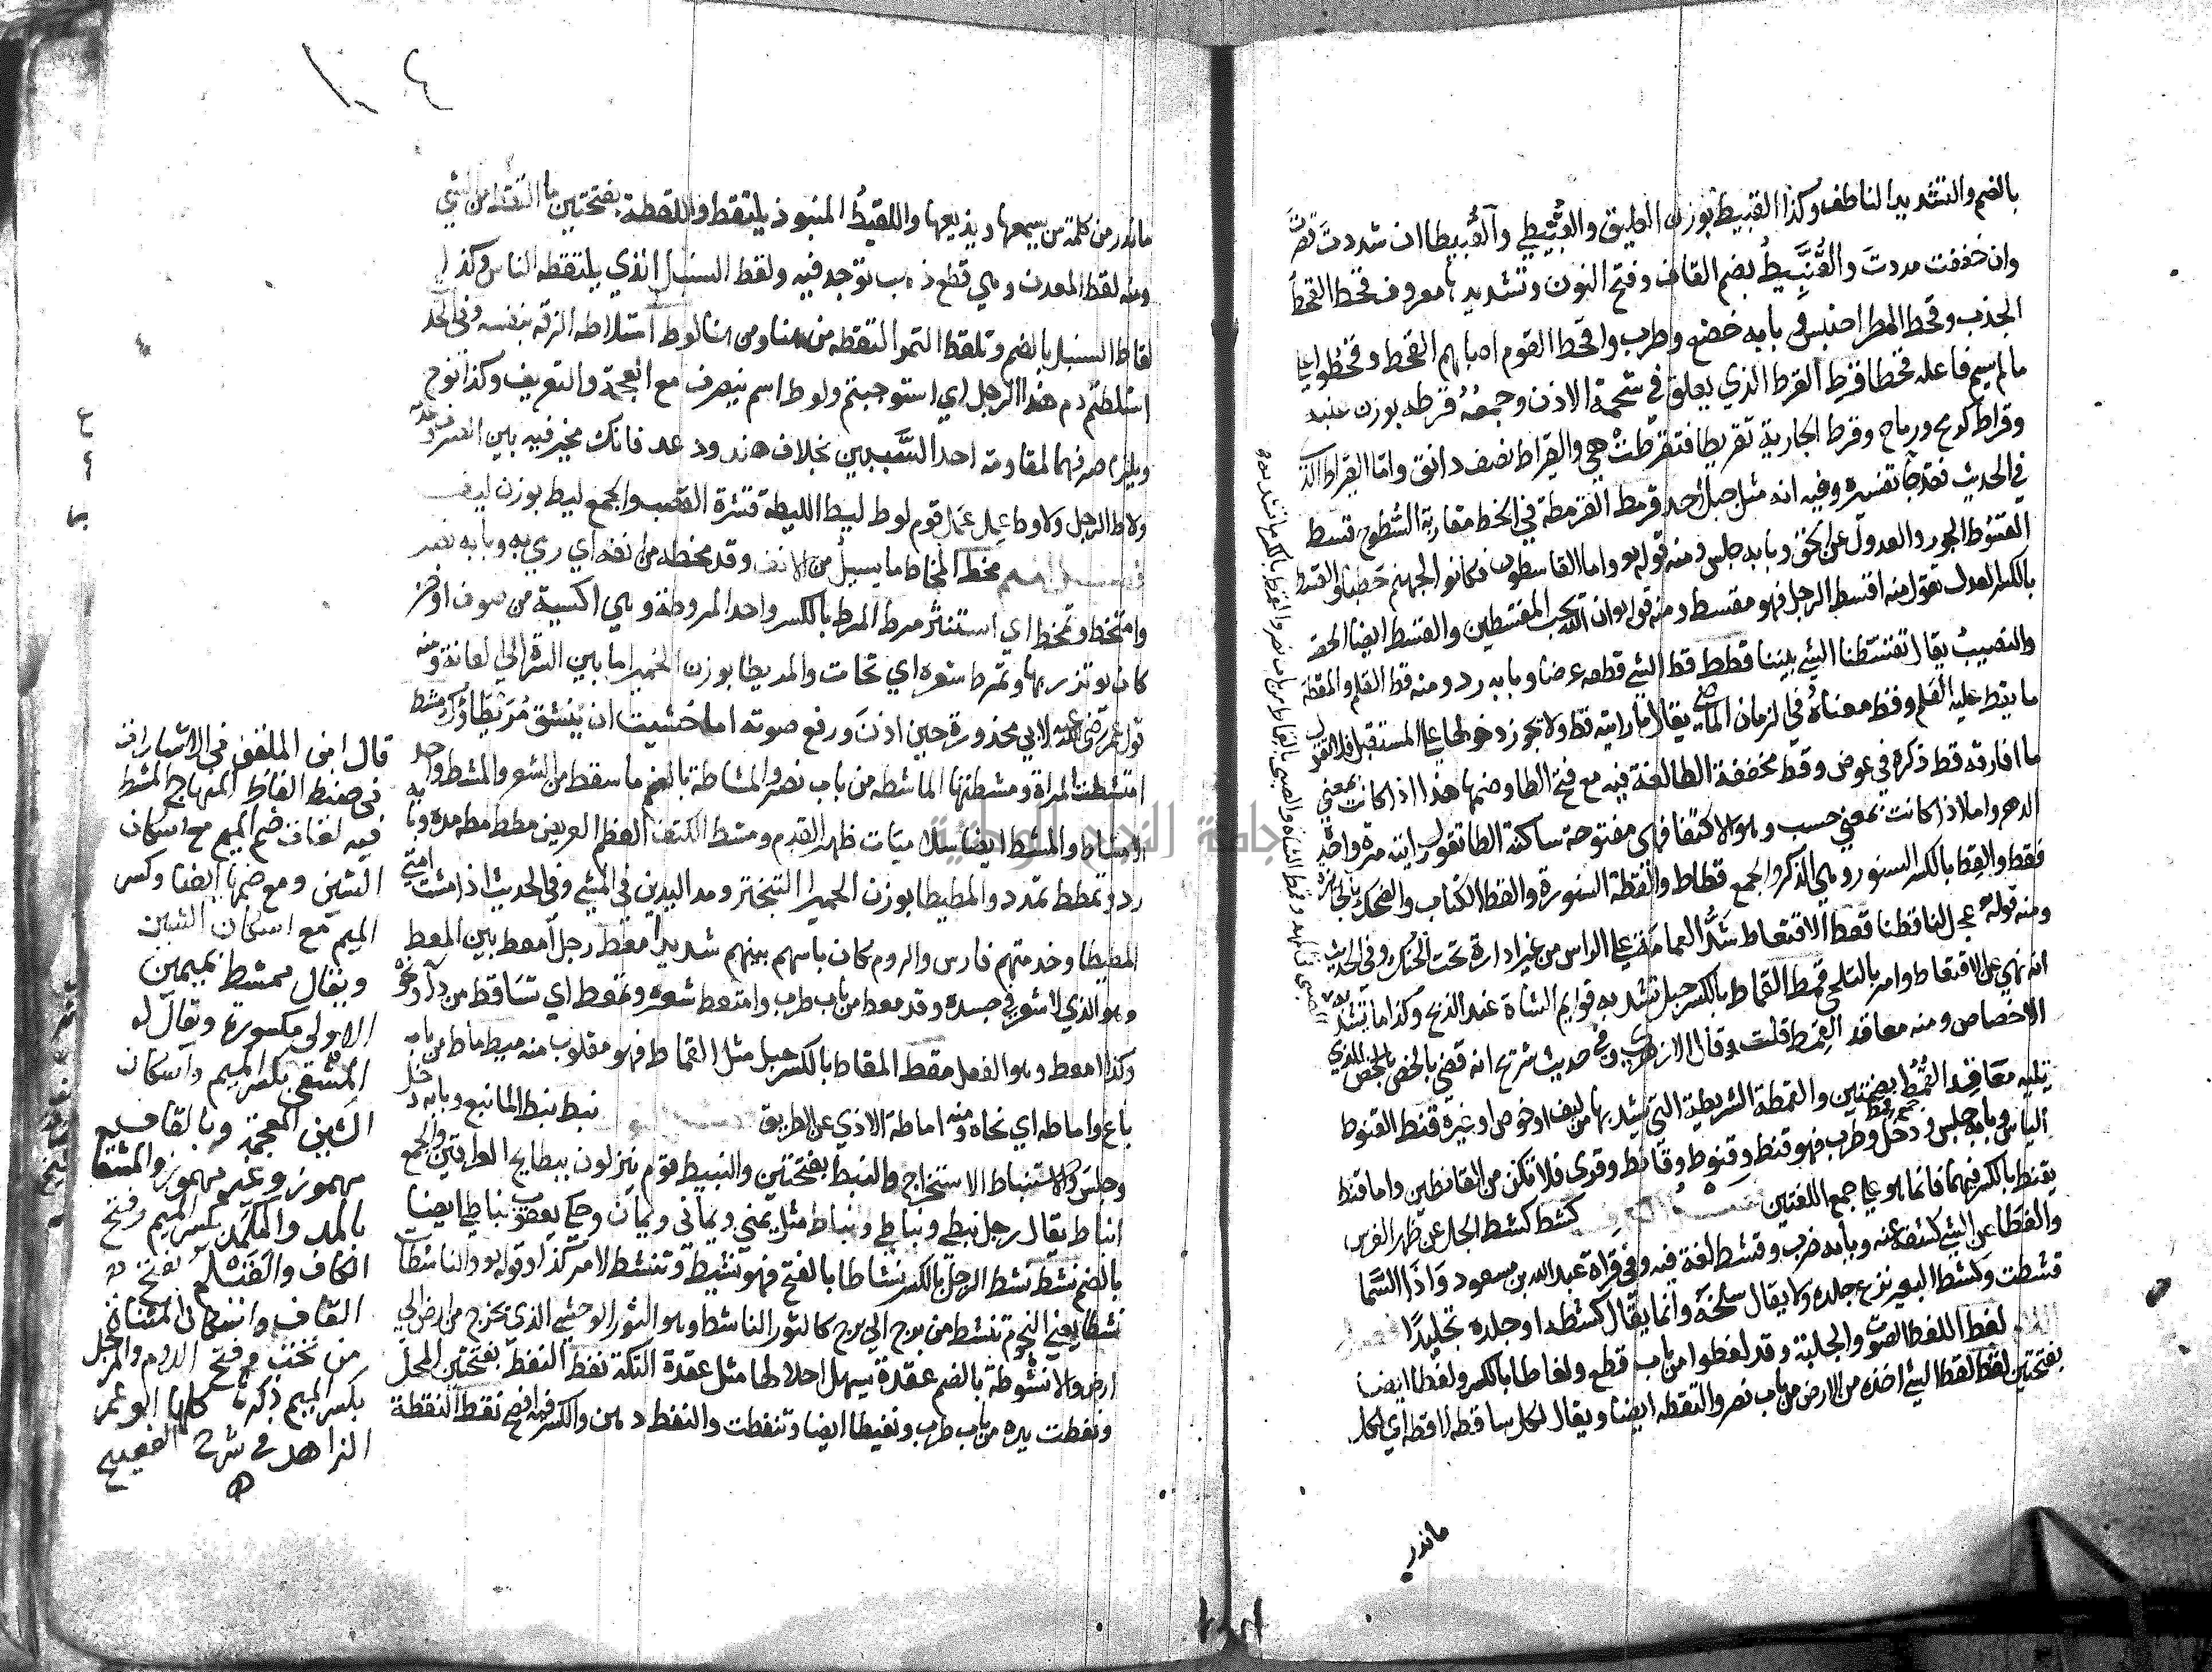 بالضم والتشديد الناطف وكذا القبيط بوزن العليق والقبيطي والقبيطا ان شددت قصرت
وان خففت مددت والقنبيط بضم القاف وفتح النون وتشديدها معروف قحط القحط
الجدب وقحط المطر احتبس بابه خضع وطرب واقحط القوم اصابهم القحط وقحطوا علي
مالم يسم فاعله قحطا قرط القرط الذي يعلق في شحمة الاذن وجمعه قرطه بوزن عنبه
وقراط كرمح ورماح وقرط الجارية تقريطا فتقرطت هي والقيراط نصف دانق واما القيراط الذي
في الحديث فقد جا تفسيره فيه انه مثل جبل احد قرمط القرمطة في الخط مقاربة السطور قسط
القسوط الجور والعدول عن الحق وبابه جلس ومنه قوله واما القاسطون فكانوا لجهنم حطبا والقسط
بالكسر العدل تقول منه اقسط الرجل فهو مقسط ومنه قوله ان الله يحب المقسطين والقسط ايضا الحصة
والنصيب يقال تقسطنا الشي بيننا قطط قط الشي قطعه عرضا وبابه رد ومنه قط القلم والمقطة
ما يقط عليه القلم وقط معناه في الزمان الماضي يقال ما رايته قط ولا تجوز دخولها علي المستقبل فلا تقول
ما افارقه قط ذكره في عوض وقط مخففة الطا لغة فيه مع فتح الطا وضمها هذا اذا كانت بمعني
الدهر واما اذا كانت بمعني حسب وهو الاكتفا فهي مفتوحة ساكنة الطا تقول رايته مرة واحدة
فقط والقط بالكسر السنور وهي الذكر والجمع قطاط والقطة السنورة والقط الكتاب والصك بالجائزة
ومنه قوله عجل لنا قطنا قعط الاقتعاط شد العمامة علي الراس من غير ادارة تحت الحنك وفي الحديث
انه نهي عن الاقتعاط وامر بالتلحي قمط القماط بالكسر حبل تشد به قوايم الشاة عند الذبح وكذا ما تشد به
الاخصاص ومنه معاقد القمط قلت وقال الازهري وفي حديث شريح انه قضي بالخص للذي
تليه معاقد القمط بضمتين والقمطة الشريطة التي يشد بها من ليف او خوص او غيره قنط القنوط
الياس وبابه جلس ودخل وطرب فهو قنط وقنوط وقانط وقري فلا تكن من القانطين واما قنط
يقنط بالكسر فيهما فانما هو علي جمع اللغتين كشط كشط الجل عن ظهر الفرس
والغطا عن الشي كشفه عنه وبابه ضرب وقشط لغة فيه وفي قراة عبد الله بن مسعود واذا السما
قشطت وكشط البعير نزع جلده ولا يقال سلخه وانما يقال كشطه او جلده تجليدا
لغط اللغط الصوت والجلبة وقد لغطوا من باب قطع ولغاطا بالكسر ولغطا ايضا
بفتحتين لقط لقط الشي اخذه من الارض من باب نصر والتقطه ايضا ويقال لكل ساقطة لاقطة اي لكل
ماندر
ماندر من كلمة من يسمعها ويذيعها واللقيط المنبوذ يلتقط واللقطة بفتحتين ما التقط من الشي
ومنه لقط المعدن وهي قطع ذهب توجد فيه ولقط السنبل الذي يلتقطه الناس وكذا
لقاط السنبل بالضم وتلقط التمر التقطه من هنا ومن هنا لوط استلاطه الزقه بنفسه وفي الحديث
استلطتم دم هذا الرجل اي استوجبتم ولوط اسم ينصرف مع العجمة والتعريف وكذا نوح
ويلزم صرفهما لمقاومته احد السببين بخلاف هند ودعد فانك مخير فيه بين الصرف وتركه
ولاط الرجل ولاوط عمل عمل قوم لوط ليط الليطة قشرة القصب والجمع ليط بوزن ليف
مخط المخاط ما يسيل من الانف وقد مخطه من انفه اي رمي به وبابه نصر
وامتخط وتمخط اي استنثر مرط المرط بالكسر واحد المروط وهي اكسية من صوف او خز
كان يوتزر بها وتمرط شعره اي تحات والمريطا بوزن الحميرا ما بين السرة الي العانة ومنه
قول عمر رضي الله عنه لابي محذورة حين اذن ورفع صوته اما خشيت ان ينشق مريطاؤك مشط
امتشطت المراة ومشطتها الماشطه من باب نصر والمشاطة بالضم ما سقط من الشعر والمشط واحد
الامشاط والمشط ايضا سلاميات ظهر القدم ومشط الكتف العظم العريض مطط مطه مده وبابه
رد وتمطط تمدد والمطيطا بوزن الحميرا التبختر ومد اليدين في المشي وفي الحديث اذا مشت امتي
المطيطا وخدمتهم فارس والروم كان باسهم بينهم شديدا معط رجل امعط بين المعط
وهو الذي لا شعر في جسده وقد معط من باب طرب وامتعط شعره وتمعط اي تساقط من داء ونحوه
وكذا امعط وهو الفعل مقط المقاط بالكسر حبل مثل القماط فهو مقلوب منه ميط ماط من بابه
باع واماطه اي نحاه ومنه اماطة الاذي عن الطريق نبط نبط الما نبع وبابه دخل
وجلس والاستنباط الاستخراج والنبط بفتحتين والنبيط قوم ينزلون ببطايح العراقين والجمع
انباط يقال رجل نبطي ونباطي ونباط مثل يمني ويماني ويمان وحكي يعقوب نباطي ايضا
بالضم نشط نشط الرجل بالكسر نشاطا بالفتح فهو نشيط وتنشط لامر كذا وقوله والناشطات
نشطا يعني النجوم تنشط من برج الي برج كالثور الناشط وهو الثور الوحشي الذي يخرج من ارض الي
ارض والانشوطة بالضم عقدة يسهل احلالها مثل عقدة التكة نفط النفط بفتحتين المجل
ونفطت يده من باب طرب ونفيطا ايضا وتنفطت والنفط دهن والكسر فيه افصح نقط النقطة
قال ابن الملقن في الاشارات
في ضبط الفاظ المنهاج المشط
فيه لغات ضم الميم مع اسكان
الشين ومع ضمها ايضا وكسر
الميم مع اسكان الشين
ويقال ممشط بميمين
الاولي مكسورة ويقال له
المشقي بكسر الميم واسكان
الشين المعجمة وبالقاف
مهموز وغير مهموز والمشقا
بالمد والمكد بكسر الميم وفتح
الكاف والقيلم بفتح
القاف واسكان المثناة
من تحت وفتح اللام والمرجل
بكسر الميم ذكرها كلها ابو عمر
الزاهد في شرح الفصيح